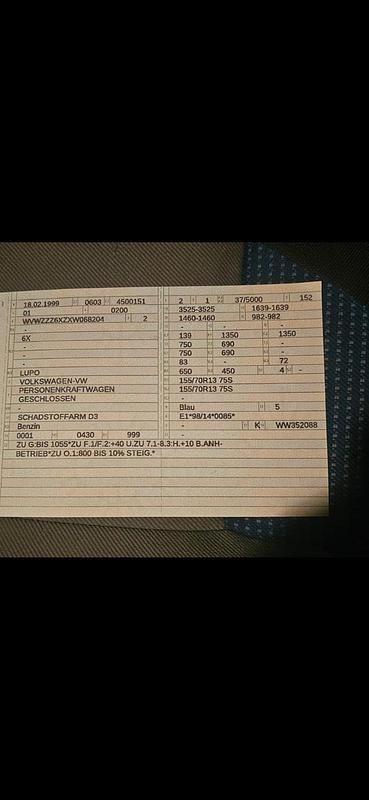 18.02.1999 0603 4500151 2 1 37/5000 152
01 0200 3525-3525 1639-1639
WVWZZZ6XZXW068204 2 1460-1460 982-982
- - - -
6X 139 1350 1350
- 750 690 -
- 750 690 -
- 83 - 72
LUPO 650 450 4 -
VOLKSWAGEN-VW 155/70R13 75S
PERSONENKRAFTWAGEN 155/70R13 75S
GESCHLOSSEN -
- Blau 5
SCHADSTOFFARM D3 E1*98/14*0085*
Benzin - K WW352088
0001 0430 999 -
ZU G:BIS 1055*ZU F.1/F.2:+40 U.ZU 7.1-8.3:H.+10 B.ANH-
BETRIEB*ZU O.1:800 BIS 10% STEIG.*